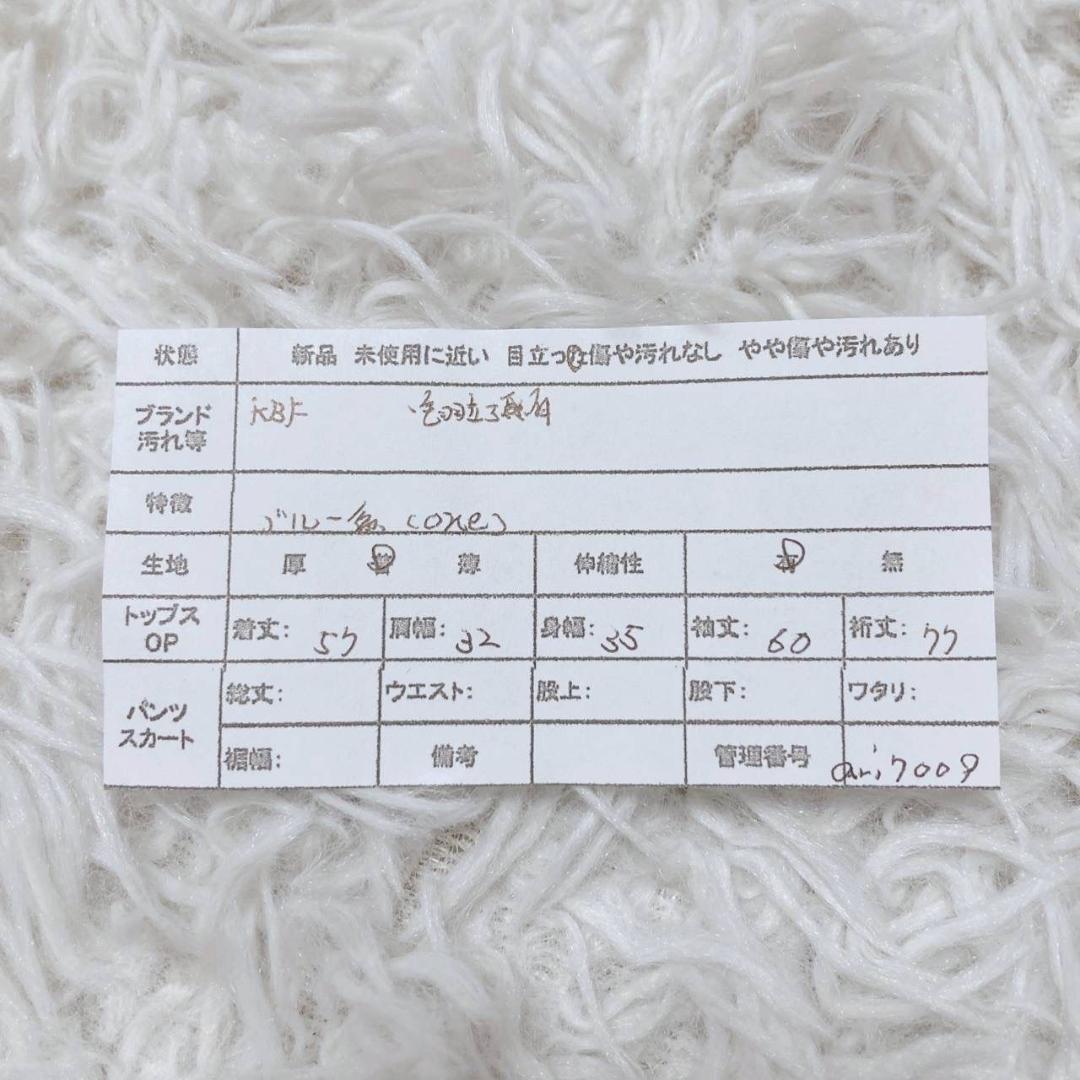 状態 新品 未使用に近い 目立った傷や汚れなし やや傷や汚れあり
ブランド KBF
汚れ等
特徴 ブルー系 (one)
生地 厚 普 薄 伸縮性 有 無
トップス OP 着丈: 57 肩幅: 32 身幅: 35 袖丈: 60 裄丈: 77
パンツ スカート 総丈: ウエスト: 股上: 股下: ワタリ:
裾幅: 備考 管理番号 ari7009